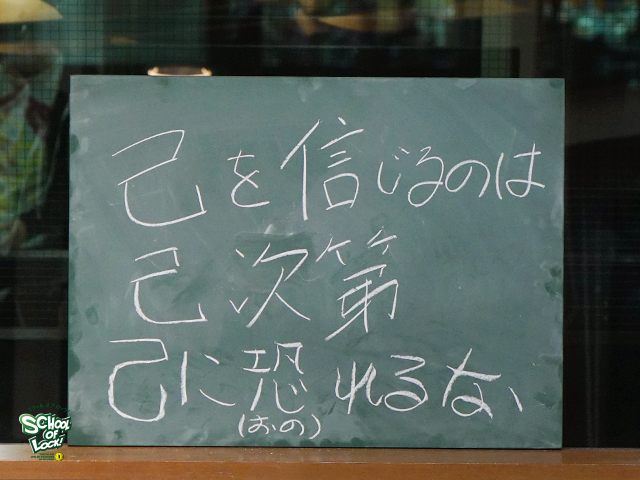 己を信じるのは
己次第
己に恐れるな、
(おの)
SCHOOL
OF
LOCK!